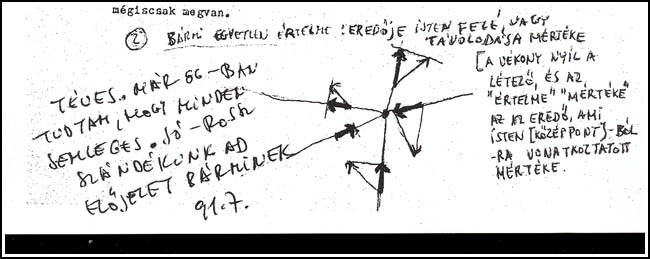 mégiscsak megvan.
② BÁRMI EGYETLEN ÉRTELME: EREDŐJE ISTEN FELÉ, VAGY
TÁVOLODÁSA MÉRTÉKE
[A VÉKONY NYÍL A
LÉTEZŐ, ÉS AZ
"ÉRTELME" "MÉRTÉKE"
AZ AZ EREDŐ, AMI
ISTEN [KÖZÉPPONT]-BÓL
-RA VONATKOZTATOTT
MÉRTÉKE.
TÉVES. MÁR 86-BAN
TUDTAM, HOGY MINDEN
SEMLEGES. JÓ-ROSSZ
SZÁNDÉKUNK AD
ELŐJELET BÁRMINEK
91.7.